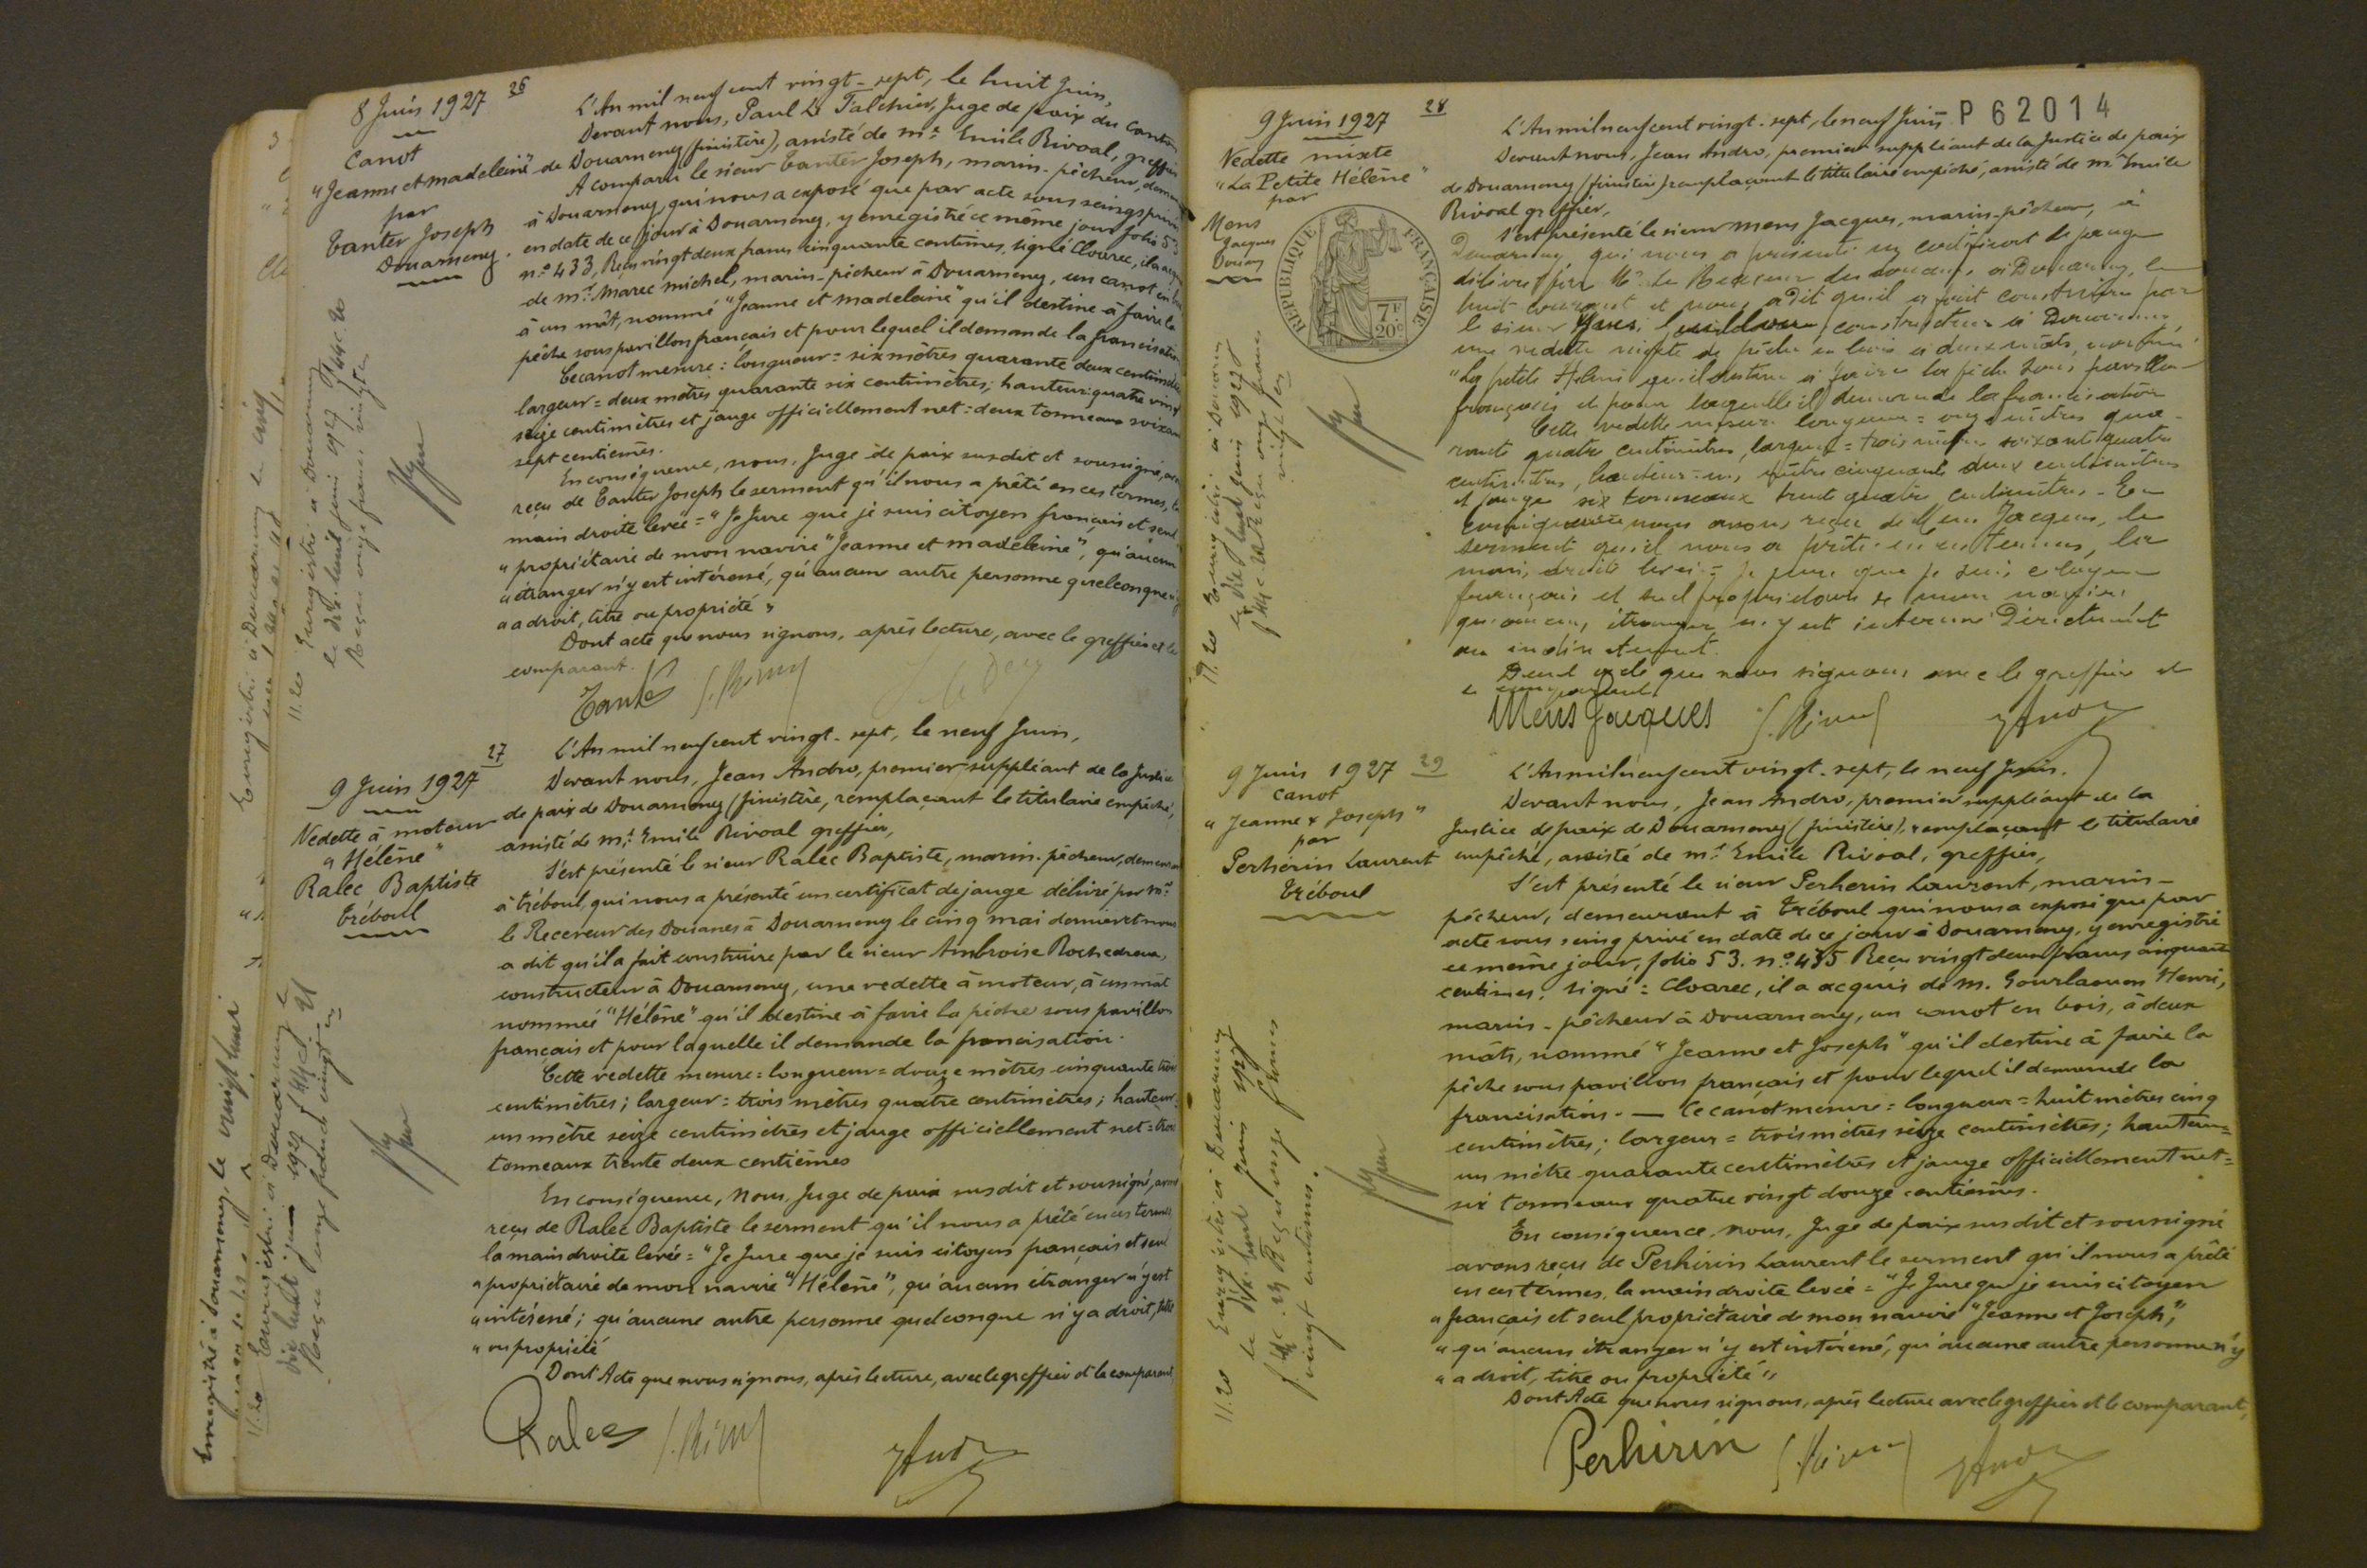 8 Juin 1927
Canot
"Jeanne et Madeleine"
par
Tanter Joseph
Douarnenez.
26
L'An mil neuf cent vingt-sept, le huit Juin,
Devant nous, Paul Le Talchier, Juge de paix du canton
de Douarnenez (finistère), assisté de Mr. Emile Rivoal, greffier
A comparu le sieur Tanter Joseph, marin-pêcheur,
à Douarnenez, qui nous a exposé que par acte sous seings privés
en date de ce jour à Douarnenez, y enregistré ce même jour folio 53
n.° 433, Reçu vingt deux francs cinquante centimes, signé Cloarec, il a acquis
de Mr. Marec Michel, marin-pêcheur à Douarnenez, un canot en bois
à un mât, nommé "Jeanne et Madeleine" qu'il destine à faire la
pêche sous pavillon français et pour lequel il demande la francisation
Ce canot mesure: longueur = six mètres quarante deux centimètres
largeur = deux mètres quarante six centimètres; hauteur: quatre vingt
seize centimètres et jauge officiellement net = deux tonneaux soixante
sept centièmes.
En conséquence, nous, Juge de paix susdit et soussigné, avons
reçu de Tanter Joseph le serment qu'il nous a prêté en ces termes, la
main droite levée = "Je Jure que je suis citoyen français et seul
"propriétaire de mon navire "Jeanne et Madeleine", qu'aucun
"étranger n'y est intéressé, qu'aucune autre personne quelconque n'y
"a droit, titre ou propriété"
Dont acte que nous signons, après lecture, avec le greffier et le
comparant.
Tanter
11.20 Enregistré à Douarnenez
le dix huit juin 1927 f 44 c. 20
Reçu onze francs vingt ces
9 Juin 1927
Vedette à moteur
"Hélène"
Ralec Baptiste
Tréboul
27
L'An mil neuf cent vingt-sept, le neuf Juin,
Devant nous, Jean Andro, premier suppléant de la Justice
de paix de Douarnenez (finistère, remplaçant le titulaire empêché,
assisté de Mr. Emile Rivoal greffier,
S'est présenté le sieur Ralec Baptiste, marin-pêcheur, demeurant
à Tréboul, qui nous a présenté un certificat de jauge délivré par Mr.
le Receveur des Douanes à Douarnenez le cinq mai dernier et nous
a dit qu'il a fait construire par le sieur Ambroise Rochedreux,
constructeur à Douarnenez, une vedette à moteur, à un mât
nommée "Hélène" qu'il destine à faire la pêche sous pavillon
français et pour laquelle il demande la francisation.
Cette vedette mesure = longueur = douze mètres cinquante trois
centimètres; largeur = trois mètres quatre centimètres; hauteur:
un mètre seize centimètres et jauge officiellement net = trois
tonneaux trente deux centièmes
En conséquence, Nous, Juge de paix susdit et soussigné, avons
reçu de Ralec Baptiste le serment qu'il nous a prêté en ces termes
la main droite levée = "Je Jure que je suis citoyen français et seul
"propriétaire de mon navire "Hélène", qu'aucun étranger n'y est
"intéressé; qu'aucune autre personne quelconque n'y a droit, titre
"ou propriété
Dont Acte que nous signons, après lecture, avec le greffier et le comparant
Ralec
11.20 Enregistré à Douarnenez le
dix huit juin 1927 f 44 c 21
Reçu onze francs vingt ces
Enregistré à Douarnenez, le vingt huit
9 Juin 1927
Vedette mixte
"La Petite Hélène"
par
Mens
Jacques
Douarnz
28
P 62014
RÉPUBLIQUE FRANÇAISE
7F
20c
L'An mil neuf cent vingt-sept, le neuf Juin
Devant nous, Jean Andro, premier suppléant de la Justice de paix
de Douarnenez (finistère) remplaçant le titulaire empêché, assisté de Mr Emile
Rivoal greffier,
S'est présenté le sieur Mens Jacques, marin-pêcheur, à
Douarnenez, qui nous a présenté un certificat de jauge
délivré par Mr le Receveur des douanes à Douarnenez, le
huit courant et nous a dit qu'il a fait construire par
le sieur constructeur à Douarnenez
une vedette mixte de pêche en bois à deux mâts, nommée
"La petite Hélène qu'il destine à faire la pêche sous pavillon
français et pour laquelle il demande la francisation
Cette vedette mesure longueur = onze mètres qua-
rante quatre centimètres, largeur = trois mètres soixante quatre
centimètres, hauteur = un mètre cinquante deux centimètres
et jauge six tonneaux trente quatre centimètres. En
conséquence nous avons reçu de Mens Jacques, le
serment qu'il nous a prêté en ces termes, la
main droite levée = Je jure que je suis citoyen
français et seul propriétaire de mon navire,
qu'aucun étranger n'y est intéressé Directement
ou indirectement.
Dont acte que nous signons avec le greffier et
le comparant
Mens Jacques
11.20 Enregistré à Douarnenez
le dix huit juin 1927
f 44 c 22 Reçu onze francs
vingt ces
9 Juin 1927
Canot
"Jeanne & Joseph"
par
Perhérin Laurent
Tréboul
29
L'An mil neuf cent vingt-sept, le neuf Juin.
Devant nous, Jean Andro, premier suppléant de la
Justice de paix de Douarnenez (finistère), remplaçant le titulaire
empêché, assisté de Mr. Emile Rivoal, greffier,
S'est présenté le sieur Perherin Laurent, marin-
pêcheur, demeurant à Tréboul qui nous a exposé que par
acte sous seing privé en date de ce jour à Douarnenez, y enregistré
ce même jour, folio 53. n.° 435 Reçu vingt deux francs cinquante
centimes. Signé = Cloarec, il a acquis de M. Gourlaouen Henri,
marin-pêcheur à Douarnenez, un canot en bois, à deux
mâts, nommé "Jeanne et Joseph" qu'il destine à faire la
pêche sous pavillon français et pour lequel il demande la
francisation. — Ce canot mesure = longueur = huit mètres cinq
centimètres; largeur = trois mètres seize centimètres; hauteur =
un mètre quarante centimètres et jauge officiellement net =
six tonneaux quatre vingt douze centièmes.
En conséquence, nous, Juge de paix susdit et soussigné
avons reçu de Perhirin Laurent le serment qu'il nous a prêté
en ces termes, la main droite levée = "Je Jure que je suis citoyen
"français et seul propriétaire de mon navire "Jeanne et Joseph",
"qu'aucun étranger n'y est intéressé, qu'aucune autre personne n'y
"a droit, titre ou propriété"
Dont Acte que nous signons, après lecture avec le greffier et le comparant,
Perhirin
11.20 Enregistré à Douarnenez
le dix huit juin 1927
f. 44 c. 23 Reçu onze francs
vingt centimes.